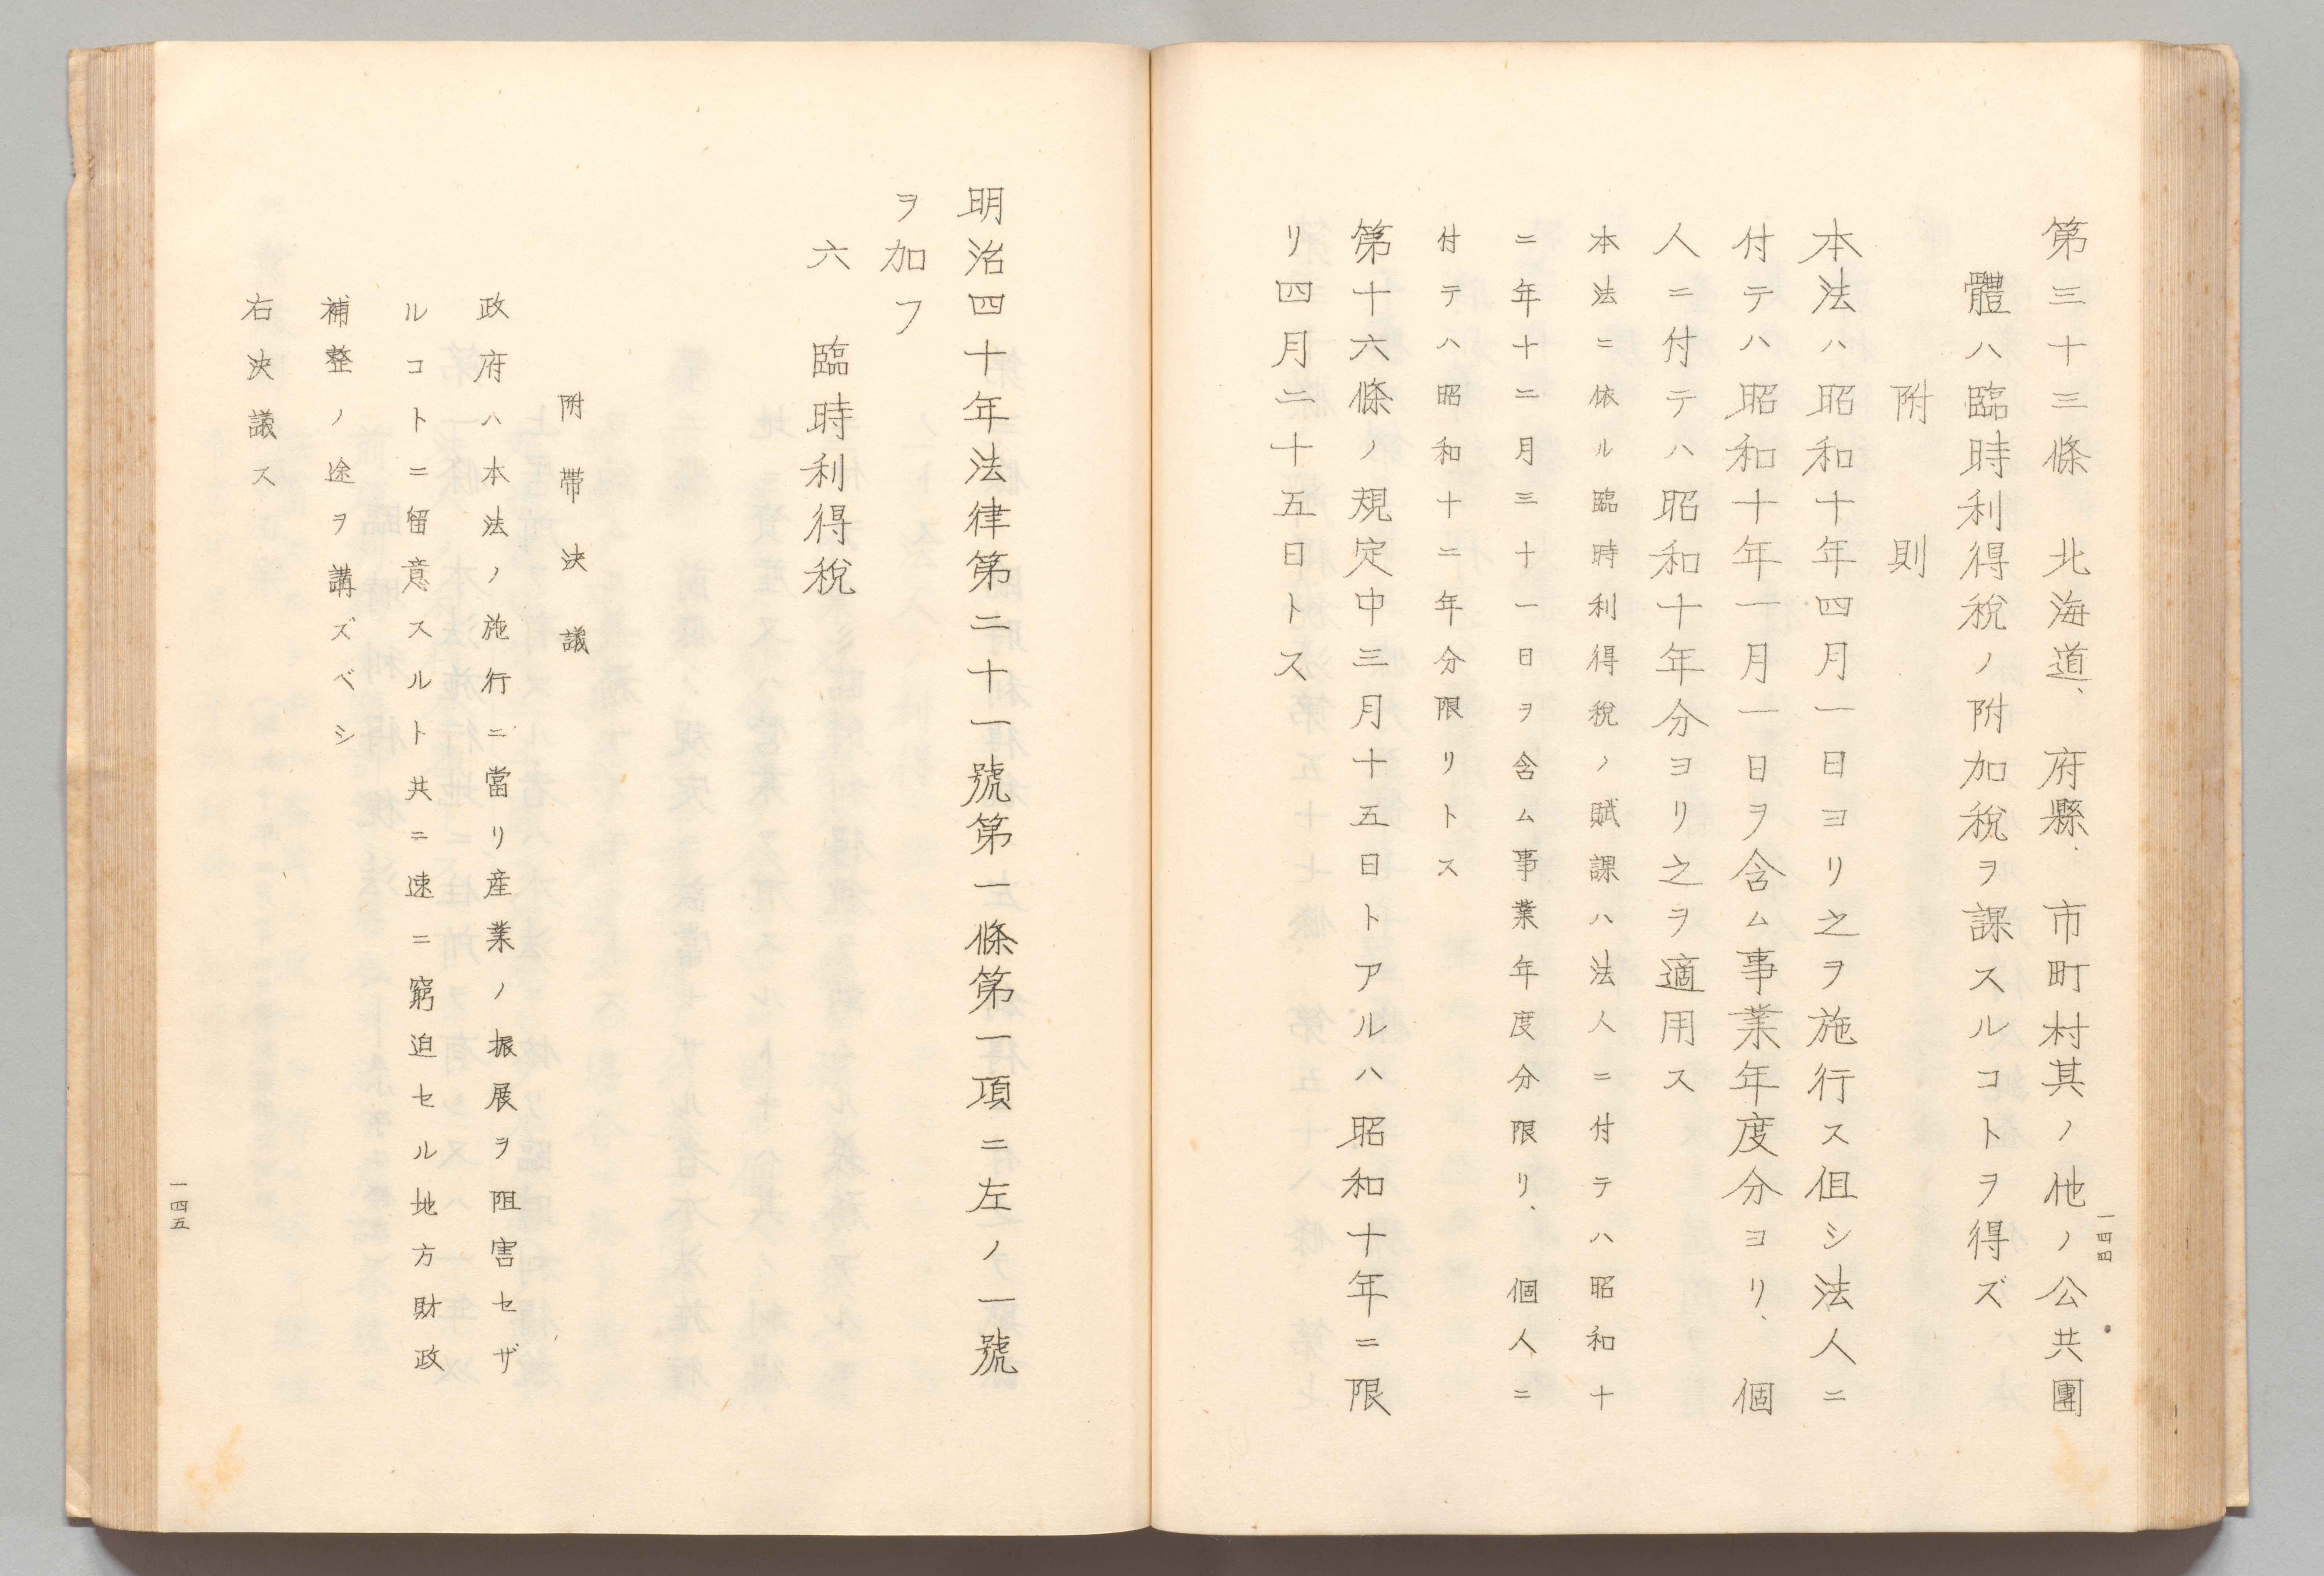 第三十三條　北海道、府縣、市町村其ノ他ノ公共團
體ハ臨時利得稅ノ附加稅ヲ課スルコトヲ得ズ
附則
本法ハ昭和十年四月一日ヨリ之ヲ施行ス但シ法人ニ
付テハ昭和十年一月一日ヲ含ム事業年度分ヨリ、個
人ニ付テハ昭和十年分ヨリ之ヲ適用ス
本法ニ依ル臨時利得稅ノ賦課ハ法人ニ付テハ昭和十
二年十二月三十一日ヲ含ム事業年度分限リ、個人ニ
付テハ昭和十二年分限リトス
第十六條ノ規定中三月十五日トアルハ昭和十年ニ限
リ四月二十五日トス
一四四
明治四十年法律第二十一號第一條第一項ニ左ノ一號
ヲ加フ
六　臨時利得稅
附帶決議
政府ハ本法ノ施行ニ當リ産業ノ振展ヲ阻害セザ
ルコトニ留意スルト共ニ速ニ窮迫セル地方財政
補整ノ途ヲ講ズベシ
右決議ス
一四五